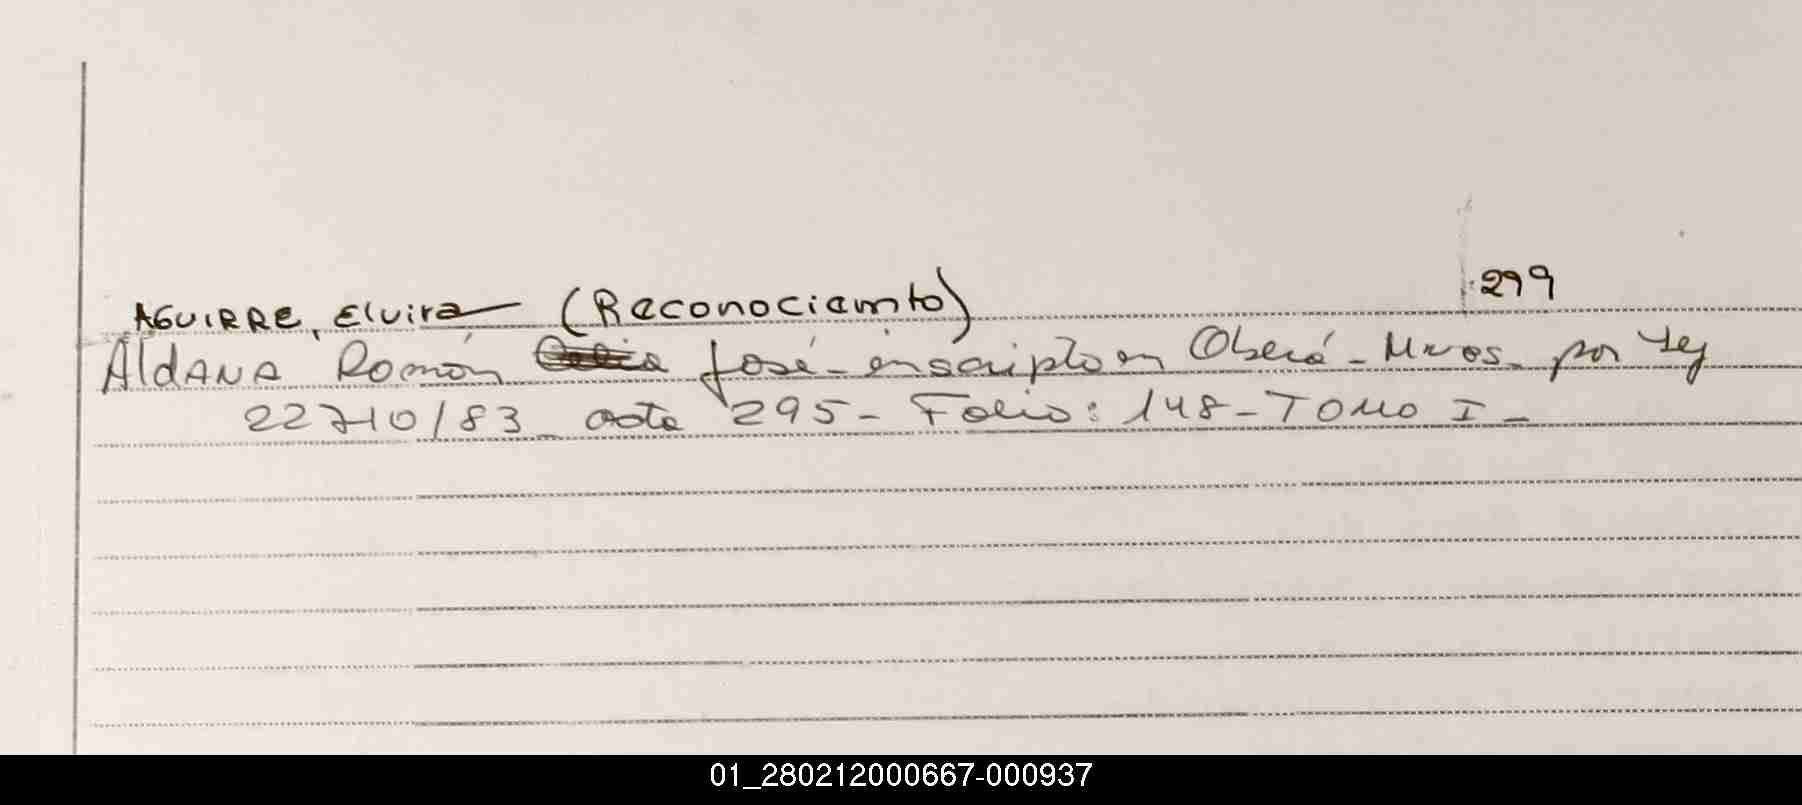 AGUIRRE, Elvira (Reconociemto) 299
AldANA Ramón José - inscripto en Oberá - Mnes. por Ley
22710/83 - acta 295 - Folio: 148 - TOMO I -
01_280212000667-000937